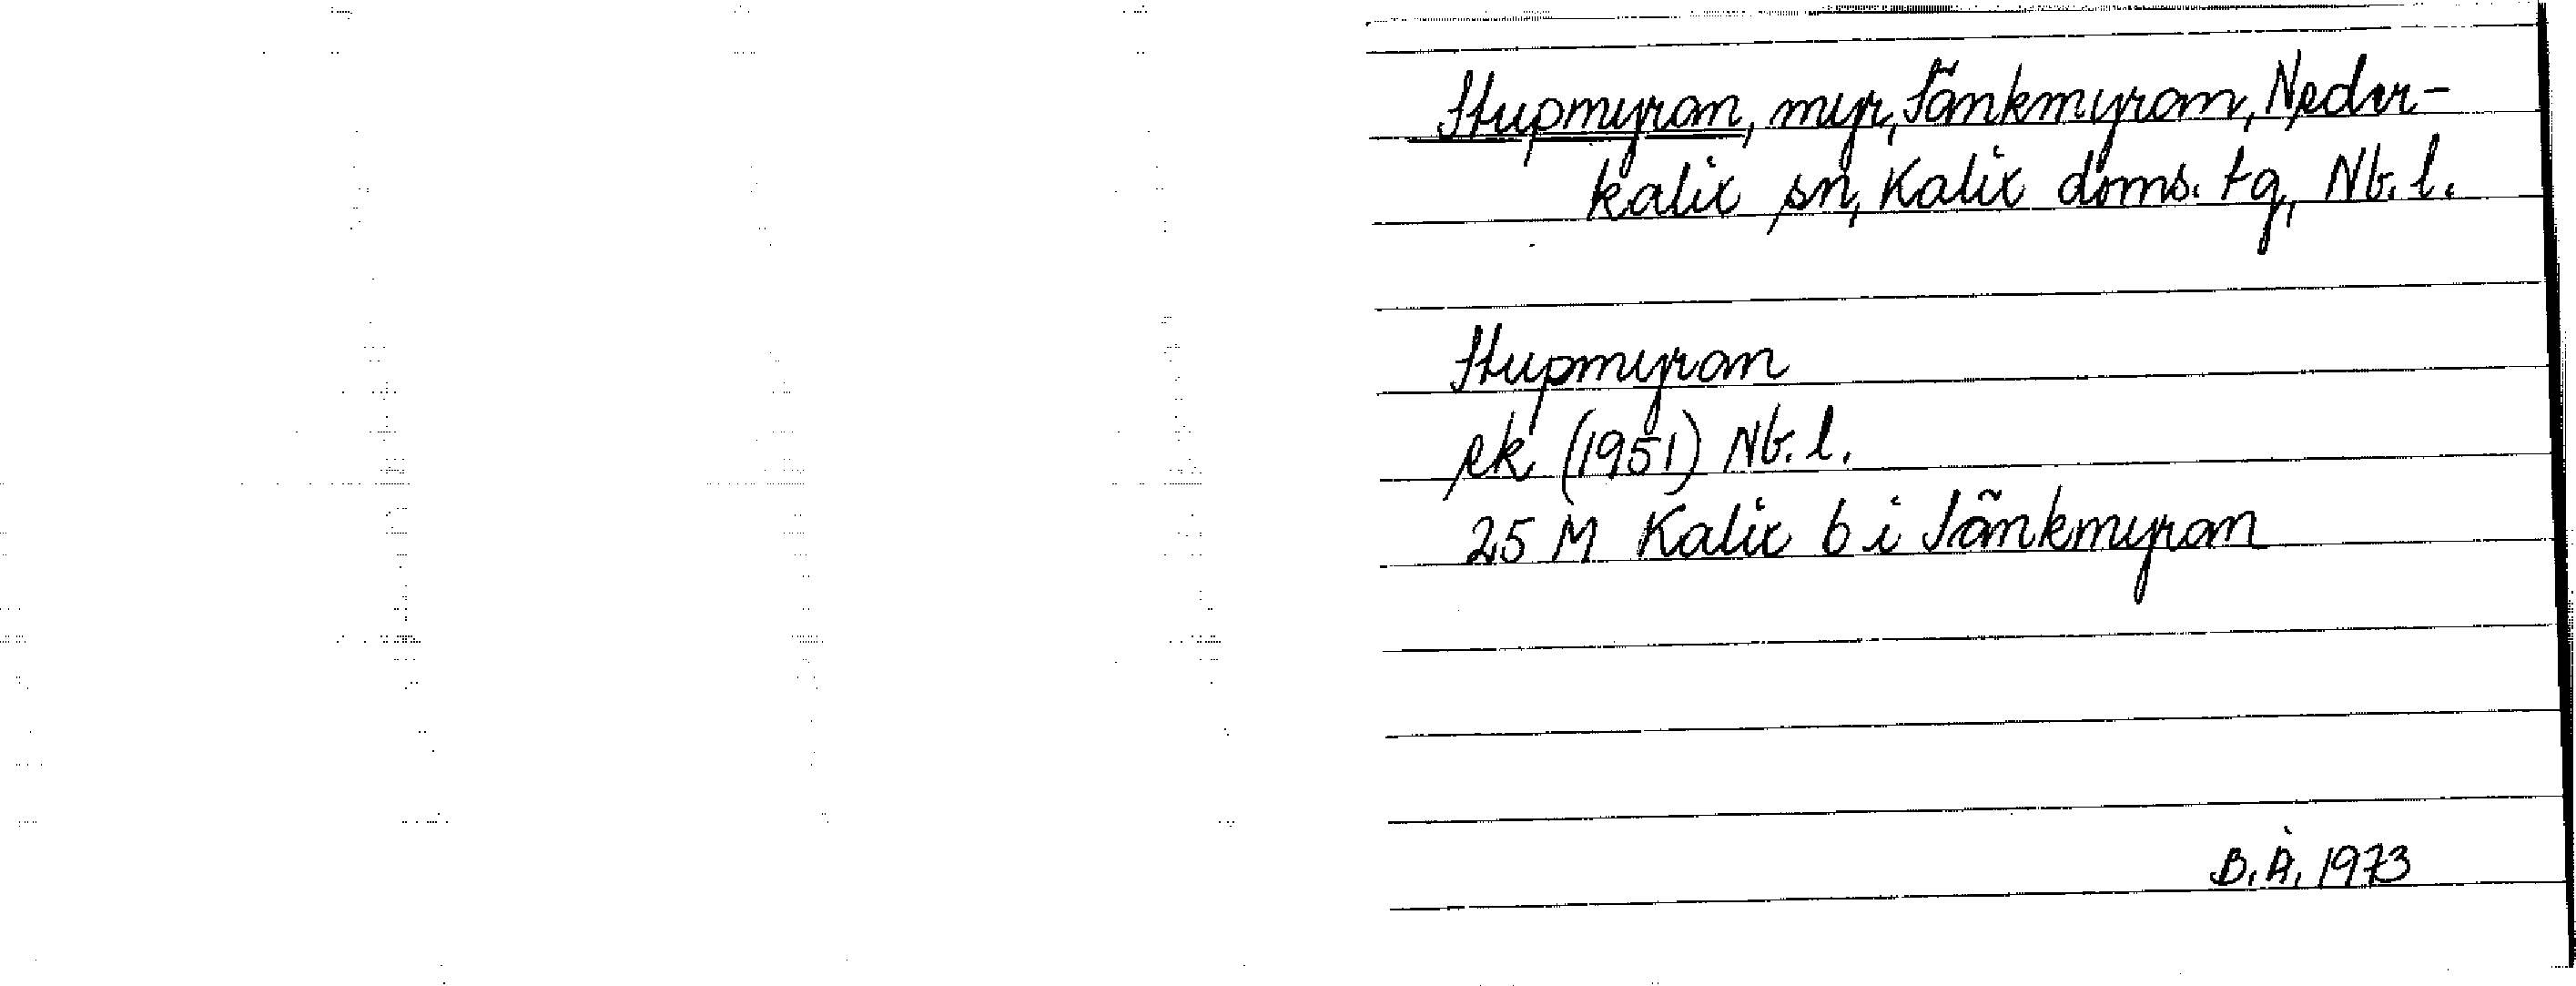 Stupmyran, myr, Sänkmyran, Neder-
kalix sn, Kalix doms. tg, Nb. l.
Stupmyran
ek (1951) Nb. l.
25 M Kalix 6 i Sänkmyran
B. Å. 1973